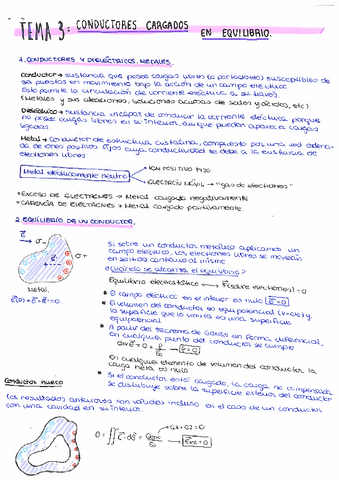 TEMA 3: CONDUCTORES CARGADOS EN EQUILIBRIO.
1. CONDUCTORES Y DIELÉCTRICOS. METALES.
Conductor → sustancia que posee cargas libres (o portadores) susceptibles de
ser puestas en movimiento bajo la acción de un campo eléctrico
Este permite la circulación de corriente eléctrica a su través
(Metales y sus aleaciones, soluciones acuosas de sales y ácidos, etc).
Dieléctrico → sustancia incapaz de conducir la corriente eléctrica porque
no posee cargas libres en su interior, aunque puedan aparecer cargas
ligadas.
Metal → conductor de estructura cristalina, compuesto por una red ordenada
de iones positivos fijos cuya conductividad se debe a la existencia de
electrones libres.
Metal eléctricamente neutro
ION POSITIVO FIJO
ELECTRÓN MÓVIL → "gas de electrones"
• EXCESO DE ELECTRONES → Metal cargado negativamente
• CARENCIA DE ELECTRONES → Metal cargado positivamente
2. EQUILIBRIO DE UN CONDUCTOR.
Si sobre un conductor metálico aplicamos un
campo eléctrico, los electrones libres se moverán
en sentido contrario al mismo
¿Cuándo se alcanza el equilibrio?
METAL
Equilibrio electrostático
• El campo eléctrico en el interior es nulo
• El volumen del conductor es equipotencial (V=cte) y
la superficie que lo limita es una superficie
equipotencial
• A partir del teorema de Gauss en forma diferencial
en cualquier punto del conductor se cumple
En cualquier elemento de volumen del conductor la
carga neta es nula
• Si el conductor está cargado, la carga no compensada
se distribuye sobre la superficie exterior del conductor
Conductor hueco
Los resultados anteriores son válidos incluso en el caso de un conductor
con una cavidad en su interior.